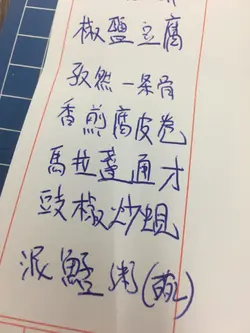 椒鹽豆腐
孜然一条骨
香煎腐皮卷
馬拉盞通才
豉椒炒蜆
泥鯭粥(走)